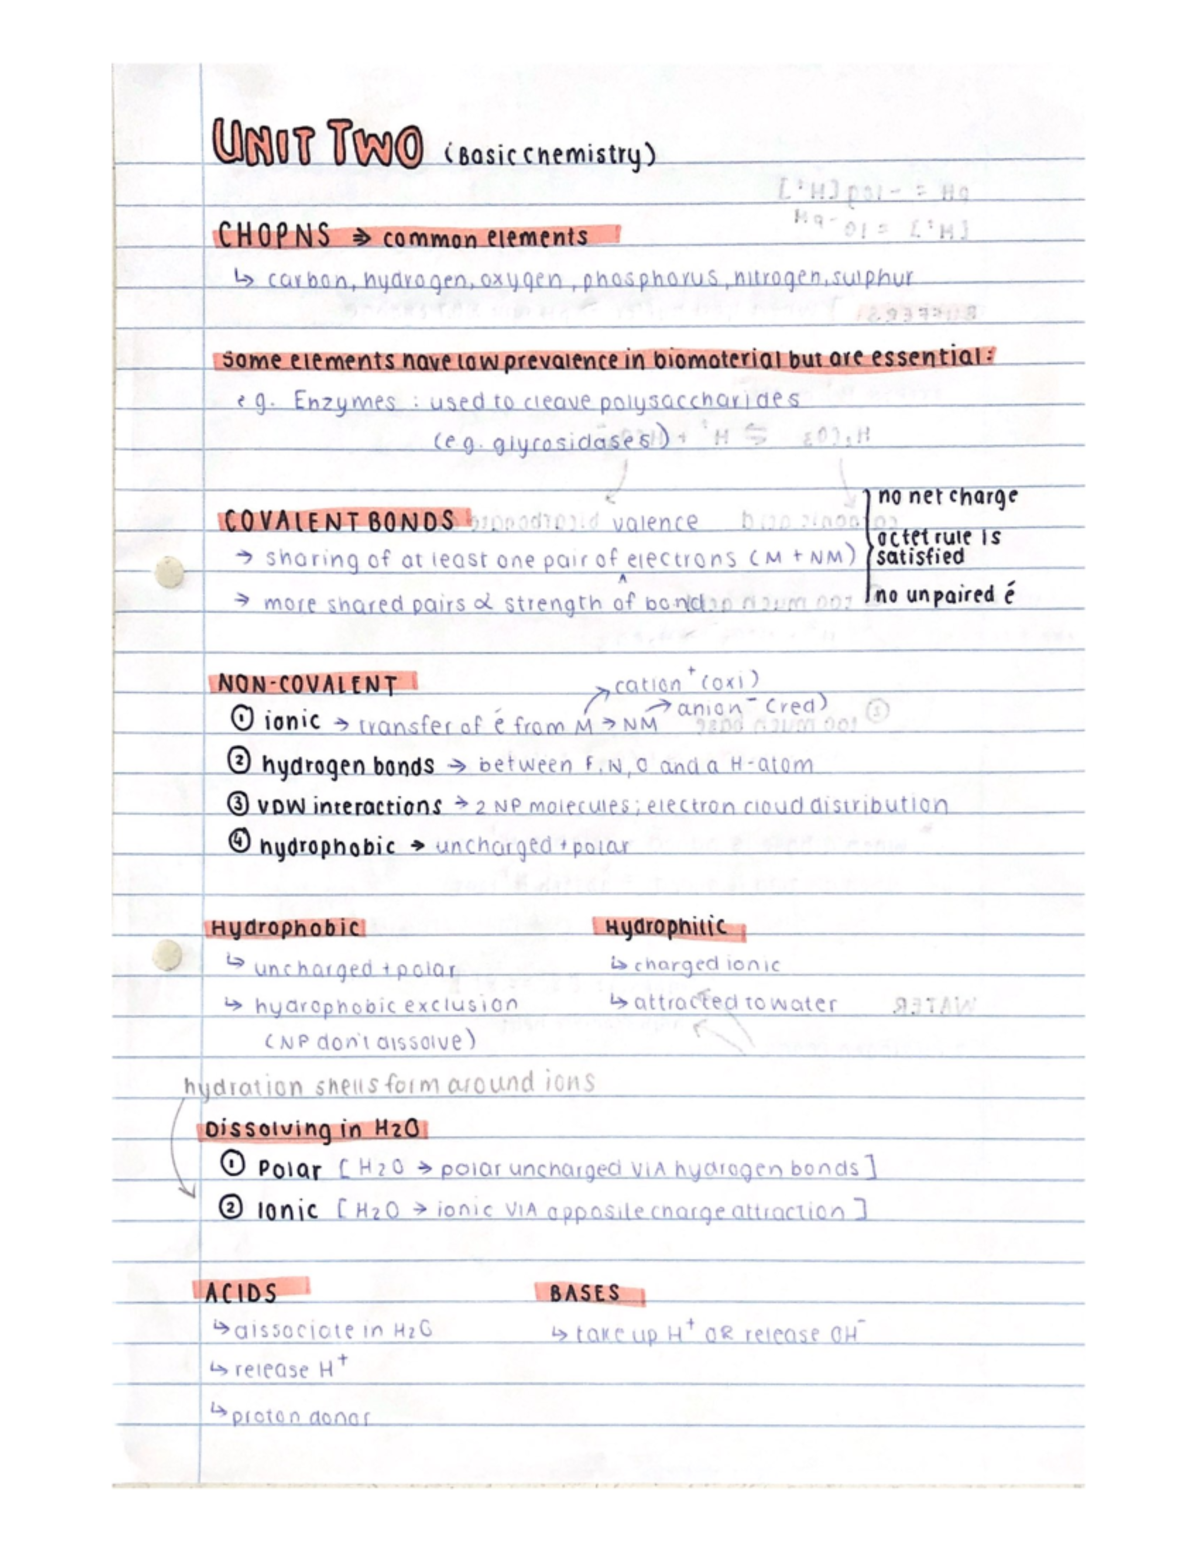 UNIT TWO (Basic Chemistry)
CHOPNS ⇒ common elements
↳ carbon, hydrogen, oxygen, phosphorus, nitrogen, sulphur
Some elements have low prevalence in biomaterial but are essential:
eg. Enzymes : used to cleave polysaccharides
(e.g. glycosidases)
COVALENT BONDS
valence
→ sharing of at least one pair of ^ electrons (M + NM)
→ more shared pairs ∝ strength of bond
no net charge
octet rule is
satisfied
no unpaired é
NON-COVALENT
cation⁺ (oxi)
anion⁻ (red)
① ionic → transfer of é from M → NM
② hydrogen bonds → between F, N, O and a H-atom
③ VDW interactions → 2 NP molecules; electron cloud distribution
④ hydrophobic → uncharged + polar
Hydrophobic
↳ uncharged + polar
↳ hydrophobic exclusion
(NP don't dissolve)
Hydrophilic
↳ charged ionic
↳ attracted to water
hydration shells form around ions
Dissolving in H2O
① Polar [H2O → polar uncharged VIA hydrogen bonds]
② Ionic [H2O → ionic VIA opposite charge attraction]
ACIDS
↳ dissociate in H2O
↳ release H⁺
↳ proton donor
BASES
↳ take up H⁺ OR release OH⁻